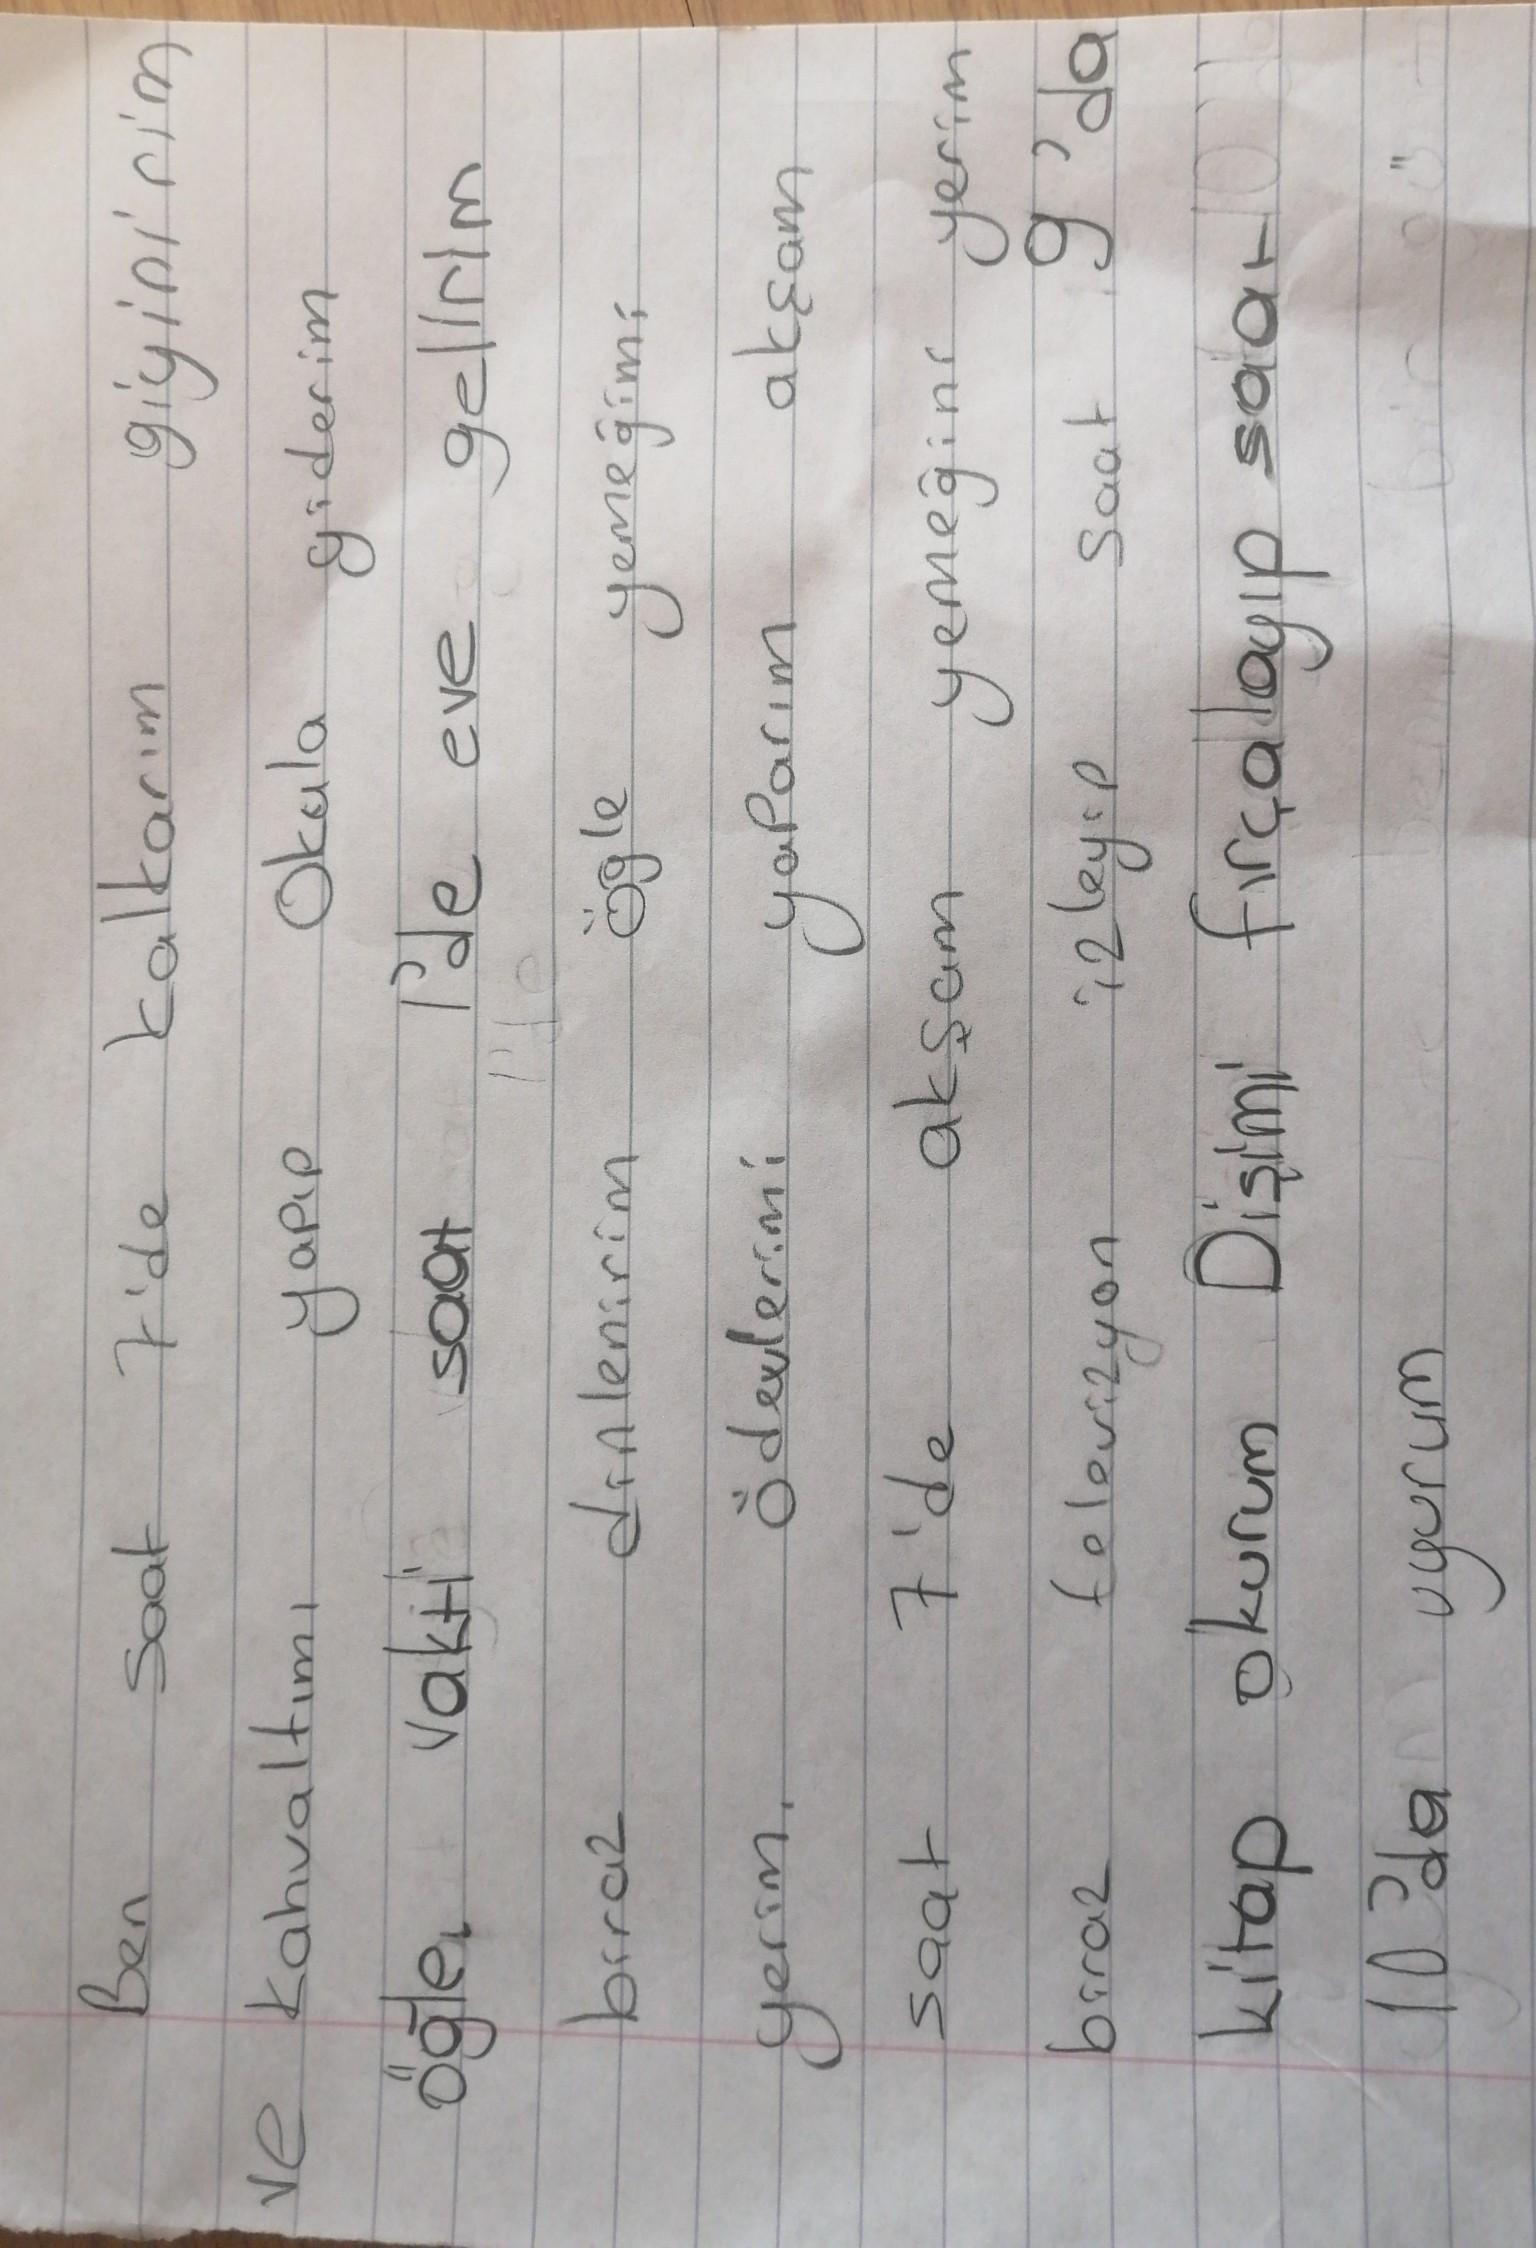 Ben saat 7'de kalkarım giyinirim
ve kahvaltımı yapıp Okula giderim
öğle, vakti saat 1'de eve gelirim
biraz dinlenirim ögle yemeğimi
yerim, ödevlerimi yaparım akşam
saat 7'de akşam yemeğini yerim
biraz televizyon izleyip saat 9'da
kitap okurum Dişimi fırçalayıp saat
10'da uyurum